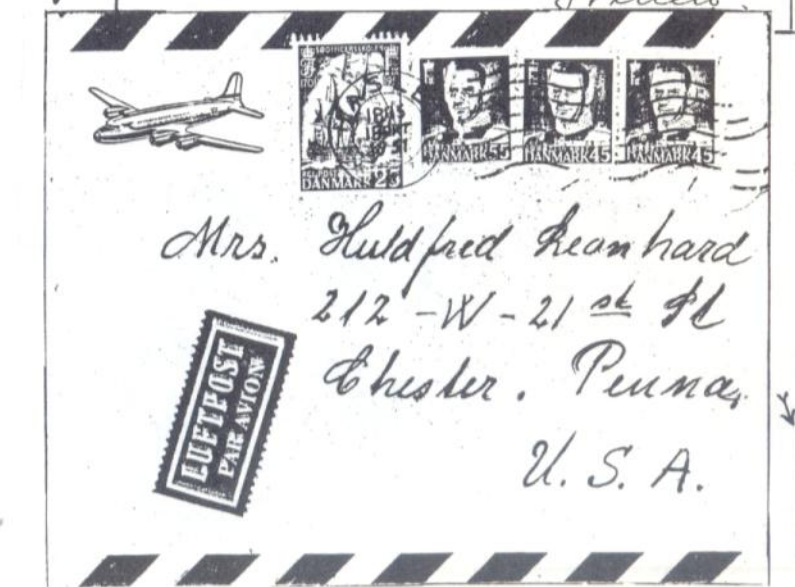 SØOFFICERSSKOLEN
1701
DANMARK 25
DANMARK 55
DANMARK 45
DANMARK 45
1951
Mrs. Huldfred Leonhard
212 - W - 21 st St
Chester. Penna,
U. S. A.
LUFTPOST
PAR AVION